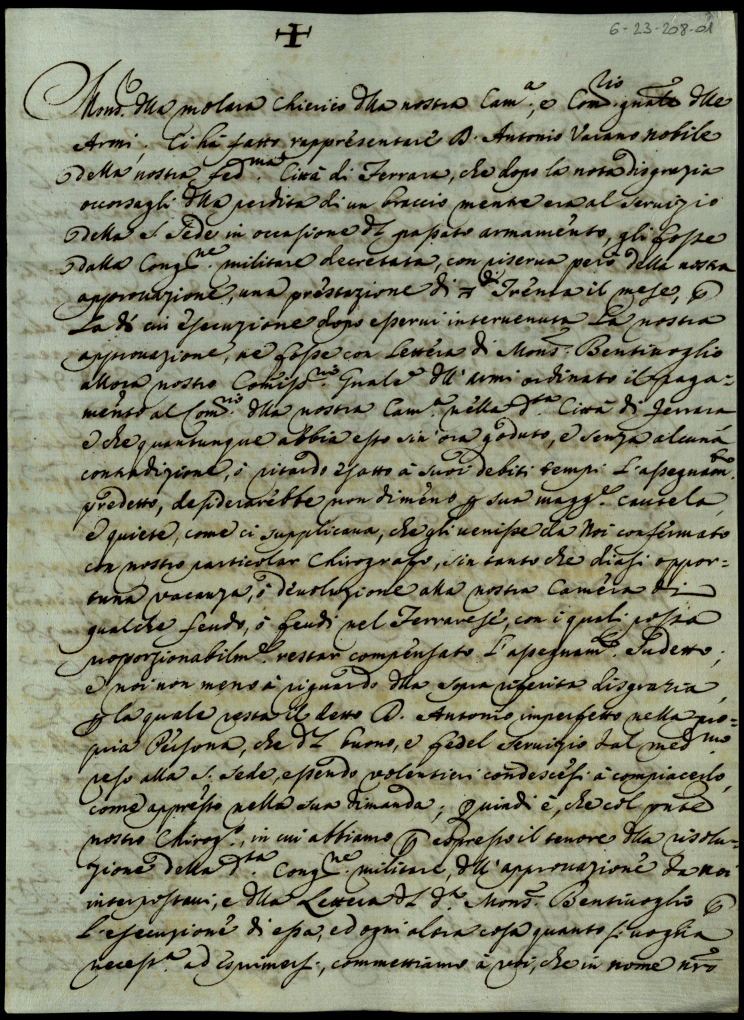 6-23-208-01
Mons.r dlla molara Chierico dlla nostra Cam.a, e Com.rio gnale dlle
Armi. Ci hà fatto rappresentare D. Antonio Varano nobile
della nostra fed.ma Città di Ferrara, che dopo la nota disgrazia
occorsagli dlla perdita di un braccio mentre era al servizio
della S. Sede in occasione dl passato armamento, gli fosse
dalla Cong.ne militare decretata, con riserva però della nostra
approvazione, una prestazione di Trenta il mese, p
La di cui esecuzione dopo esservi intervenuta La nostra
approvazione, ne fosse con Lettera di Mons.r Bentivoglio
allora nostro Comiss.rio Gnale dll'armi ordinato il paga-
mento al Com.rio dlla nostra Cam.a nella d.ta Città di Ferrara
e che quantunque abbia esso sin'ora goduto, e senza alcuna
contradizione, ò ritardo esatto à suoi debiti tempi L'assegnam.to
predetto, desiderarebbe non dimeno p sua magg.r cautela,
e quiete, come ci supplicava, che gli venisse da Noi confermato
con nostro particolar Chirografo, sin tanto che diasi oppor-
tuna vacanza, ò devoluzione alla nostra Camera di
qualche feudo, ò feudi nel Ferrarese, con i quali possa
proporzionabilm.te restar compensato L'assegnam.to sudetto;
e noi non meno à riguardo dlla sopra riferita disgrazia,
p la quale resta il detto D. Antonio imperfetto nella pro-
pria Persona, che dl buono, e fedel servizio dal med.mo
reso alla S. Sede, essendo volentieri condescesi à compiacerlo,
come appresso nella sua dimanda; Quindi è, che col pnte
nostro Chirog.o, in cui abbiamo p espresso il tenore dlla risolu-
zione della d.ta Cong.ne militare, dll'approvazione da noi
interpostavi, e dlla Lettera dl d.o Mons.r Bentivoglio p
L'esecuzione di essa, ed ogni altra cosa quanto si voglia
necess.a ad esprimersi, commettiamo à voi, che in nome nro